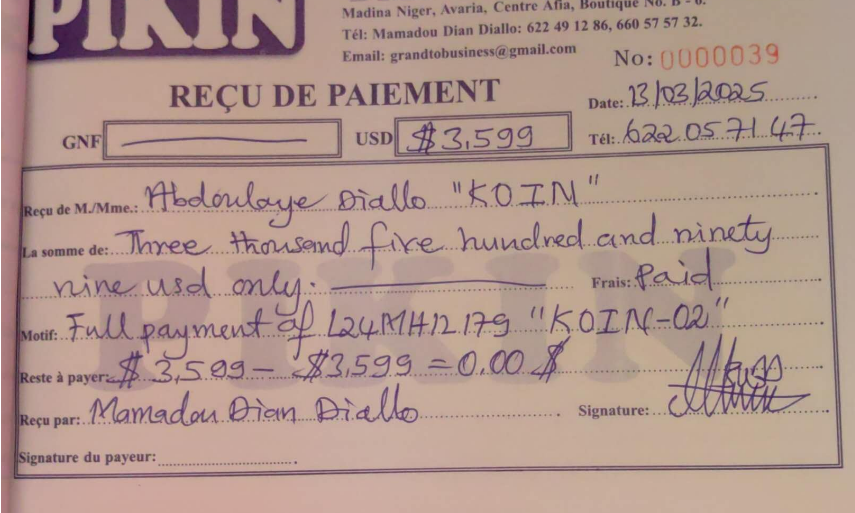 PIKIN
Madina Niger, Avaria, Centre Afia, Boutique No. B - 6.
Tél: Mamadou Dian Diallo: 622 49 12 86, 660 57 57 32.
Email: grandtobusiness@gmail.com
No: 0000039
REÇU DE PAIEMENT
Date: 13/03/2025
GNF USD $3,599 Tél: 622 05 71 47
Reçu de M./Mme.: Abdoulaye Diallo "KOIN"
La somme de: Three thousand five hundred and ninety
nine usd only. Frais: Paid
Motif: Full payment of L24MH12179 "KOIN-02"
Reste à payer: $ 3,599 - $3,599 = 0.00 $
Reçu par: Mamadou Dian Diallo Signature:
Signature du payeur:
PIKIN